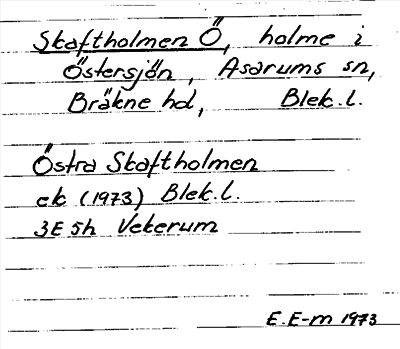 Skaftholmen Ö, holme i
Östersjön, Asarums sn,
Bräkne hd, Blek. l.
Östra Skaftholmen
ek (1973) Blek. l.
3E 5h Vekerum
E. E-m 1973